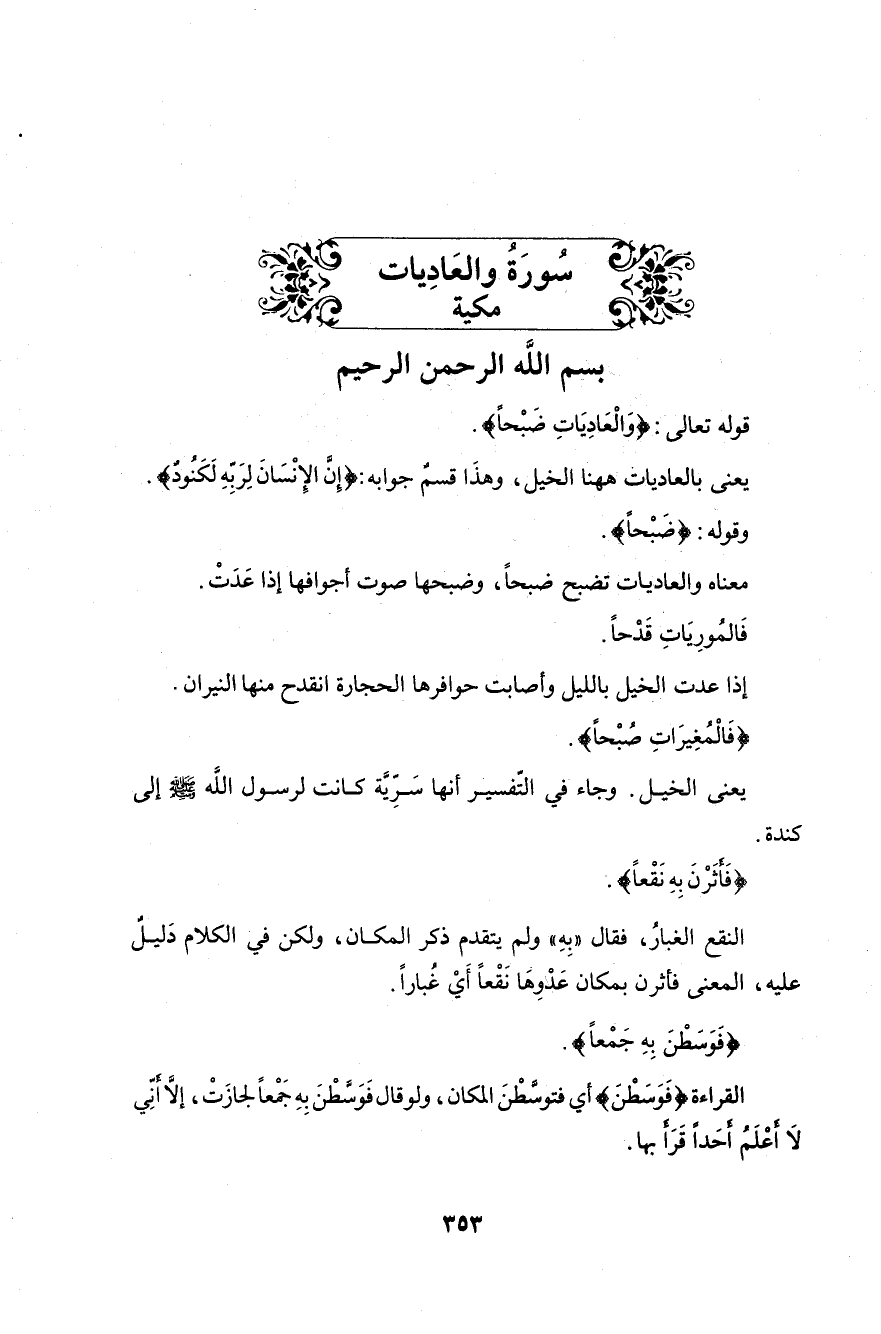 سُورَةُ والعَادِيات
مكية
بسم اللَّه الرحمن الرحيم
قوله تعالى : ﴿وَالْعَادِيَاتِ ضَبْحاً﴾ .
يعنى بالعاديات ههنا الخيل ، وهذَا قسمٌ جوابه : ﴿إِنَّ الإِنْسَانَ لِرَبِّهِ لَكَنُودٌ﴾ .
وقوله : ﴿ضَبْحاً﴾ .
معناه والعاديات تضبح ضبحاً ، وضبحها صوت أجوافها إذا عَدَتْ .
فَالمُورِيَاتِ قَدْحاً .
إذا عدت الخيل بالليل وأصابت حوافرها الحجارة انقدح منها النيران .
﴿فَالْمُغِيرَاتِ صُبْحاً﴾ .
يعنى الخيل . وجاء في التّفسير أنها سَرِيَّة كانت لرسول اللَّه ﷺ إلى
كندة .
﴿فَأَثَرْنَ بِهِ نَقْعاً﴾ .
النقع الغبارُ ، فقال «بِهِ» ولم يتقدم ذكر المكان ، ولكن في الكلام دَليلٌ
عليه ، المعنى فأثرن بمكان عَدْوِهَا نَقْعاً أَيْ غُباراً .
﴿فَوَسَطْنَ بِهِ جَمْعاً﴾ .
القراءة ﴿فَوَسَطْنَ﴾ أي فتوسَّطْنَ المكان ، ولو قال فَوَسَّطْنَ بِهِ جَمْعاً لجازَتْ ، إلاَّ أَنِّي
لَا أَعْلَمُ أَحَداً قَرَأَ بها .
٣٥٣